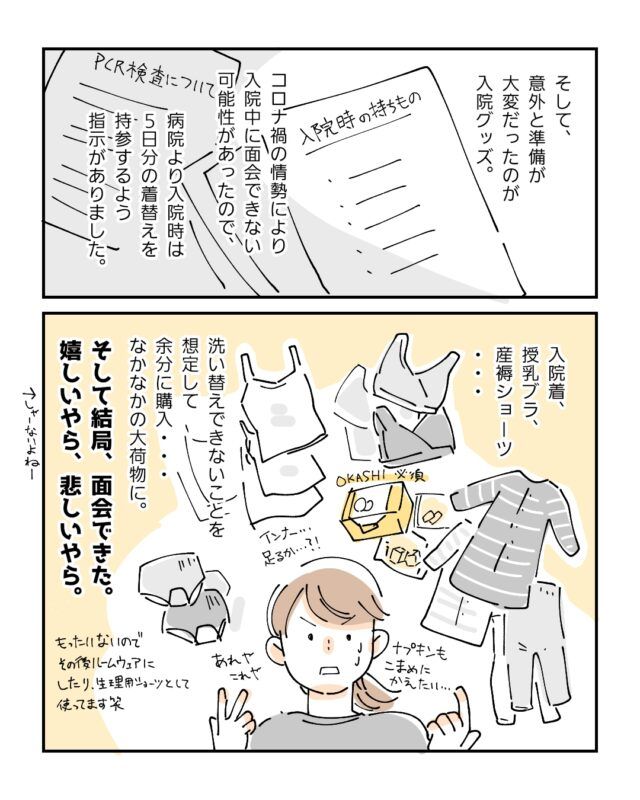 そして、
意外と準備が
大変だったのが
入院グッズ。
入院時の持ちもの
コロナ禍の情勢により
入院中に面会できない
可能性があったので、
PCR検査について
病院より入院時は
5日分の着替えを
持参するよう
指示がありました。
入院着、
授乳ブラ、
産褥ショーツ
・・・
洗い替えできないことを
想定して
余分に購入・・・
なかなかの大荷物に。
OKASHI 必須
インナー…
足るか…?!
そして結局、面会できた。
嬉しいやら、悲しいやら。
↑しゃーないよねー
ナプキンも
こまめに
かえたい…
あれヤ
これヤ
もったいないので
その後ルームウェアに
したり、生理用ショーツとして
使ってます笑